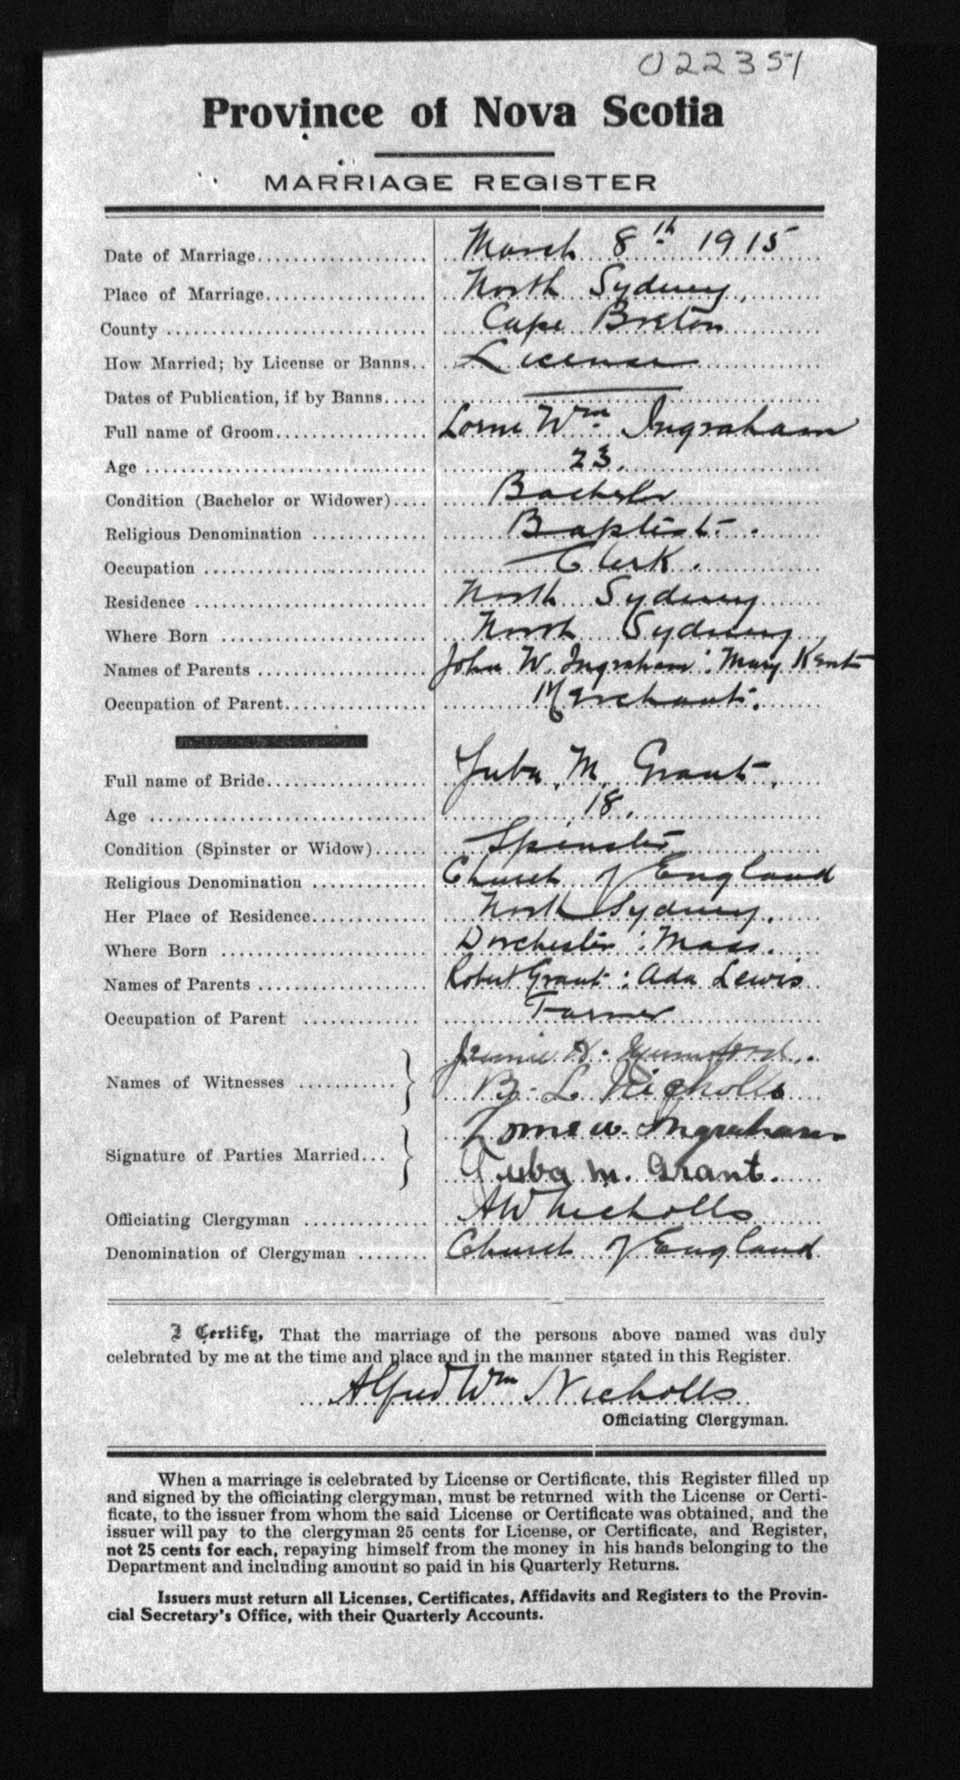 022351
Province of Nova Scotia
MARRIAGE REGISTER
Date of Marriage March 8th 1915
Place of Marriage North Sydney,
County Cape Breton
How Married; by License or Banns License
Dates of Publication, if by Banns
Full name of Groom Lorne Wm Ingraham
Age 23.
Condition (Bachelor or Widower) Bachelor
Religious Denomination Baptist.
Occupation Clerk.
Residence North Sydney
Where Born North Sydney,
Names of Parents John W. Ingraham : Mary Kent
Occupation of Parent Merchant.
Full name of Bride Juba M. Grant.
Age 18.
Condition (Spinster or Widow) Spinster
Religious Denomination Church of England
Her Place of Residence North Sydney.
Where Born Dorchester : Mass.
Names of Parents Robert Grant : Ada Lewis
Occupation of Parent Farmer
Names of Witnesses
B. L Nicholls
Signature of Parties Married Lorne W. Ingraham
Juba M. Grant.
Officiating Clergyman AW Nicholls
Denomination of Clergyman Church of England
I Certify, That the marriage of the persons above named was duly
celebrated by me at the time and place and in the manner stated in this Register.
Alfred Wm Nicholls
Officiating Clergyman.
When a marriage is celebrated by License or Certificate, this Register filled up
and signed by the officiating clergyman, must be returned with the License or Certi-
ficate, to the issuer from whom the said License or Certificate was obtained, and the
issuer will pay to the clergyman 25 cents for License, or Certificate, and Register,
not 25 cents for each, repaying himself from the money in his hands belonging to the
Department and including amount so paid in his Quarterly Returns.
Issuers must return all Licenses, Certificates, Affidavits and Registers to the Provin-
cial Secretary's Office, with their Quarterly Accounts.